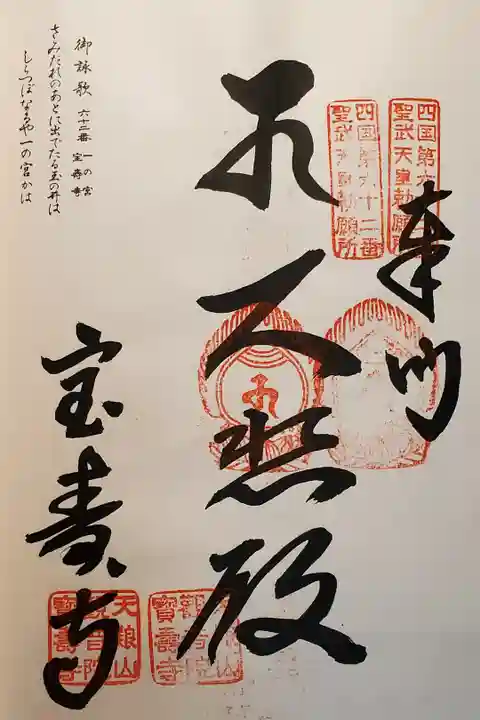 奉納
四国第六十二番
聖武天皇勅願所
四国第六
聖武天皇勅願所
大悲殿
宝寿寺
天養山
観音院
寶壽寺
山
観音院
寶壽寺
御詠歌 六十二番 一の宮
宝寿寺
さみだれのあとに出でたる玉の井は
しらつぼなるや一の宮かは